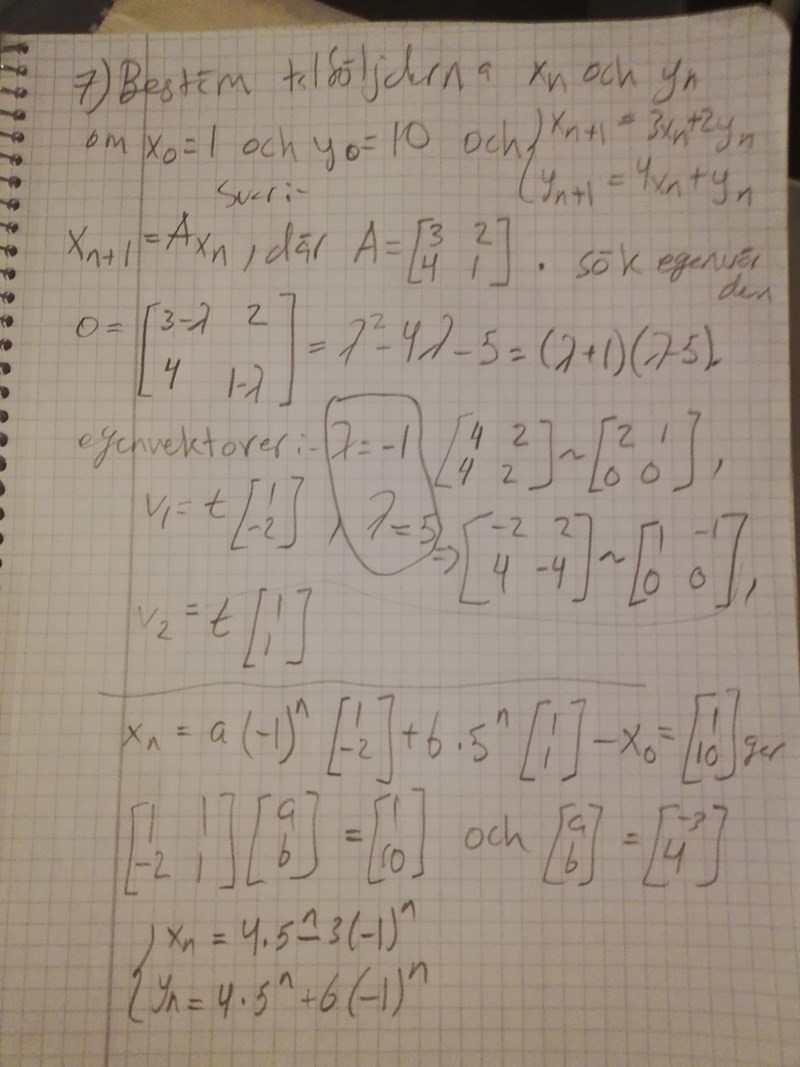 7) Bestäm talföljderna xn och yn
om x0=1 och y0=10 och { xn+1 = 3xn+2yn
{ yn+1 = 4xn+yn
Svar:-
xn+1 = Axn, där A = [3 2; 4 1]. sök egenvärden
0 = [3-λ 2; 4 1-λ] = λ²-4λ-5 = (λ+1)(λ-5).
egenvektorer:- λ=-1 [4 2; 4 2] ~ [2 1; 0 0],
v1 = t[1; -2], λ=5 => [-2 2; 4 -4] ~ [1 -1; 0 0],
v2 = t[1; 1]
xn = a(-1)^n [1; -2] + b·5^n [1; 1] - x0 = [1; 10] ger
[1 1; -2 1][a; b] = [1; 10] och [a; b] = [-3; 4]
{ xn = 4·5^n - 3(-1)^n
{ yn = 4·5^n + 6(-1)^n